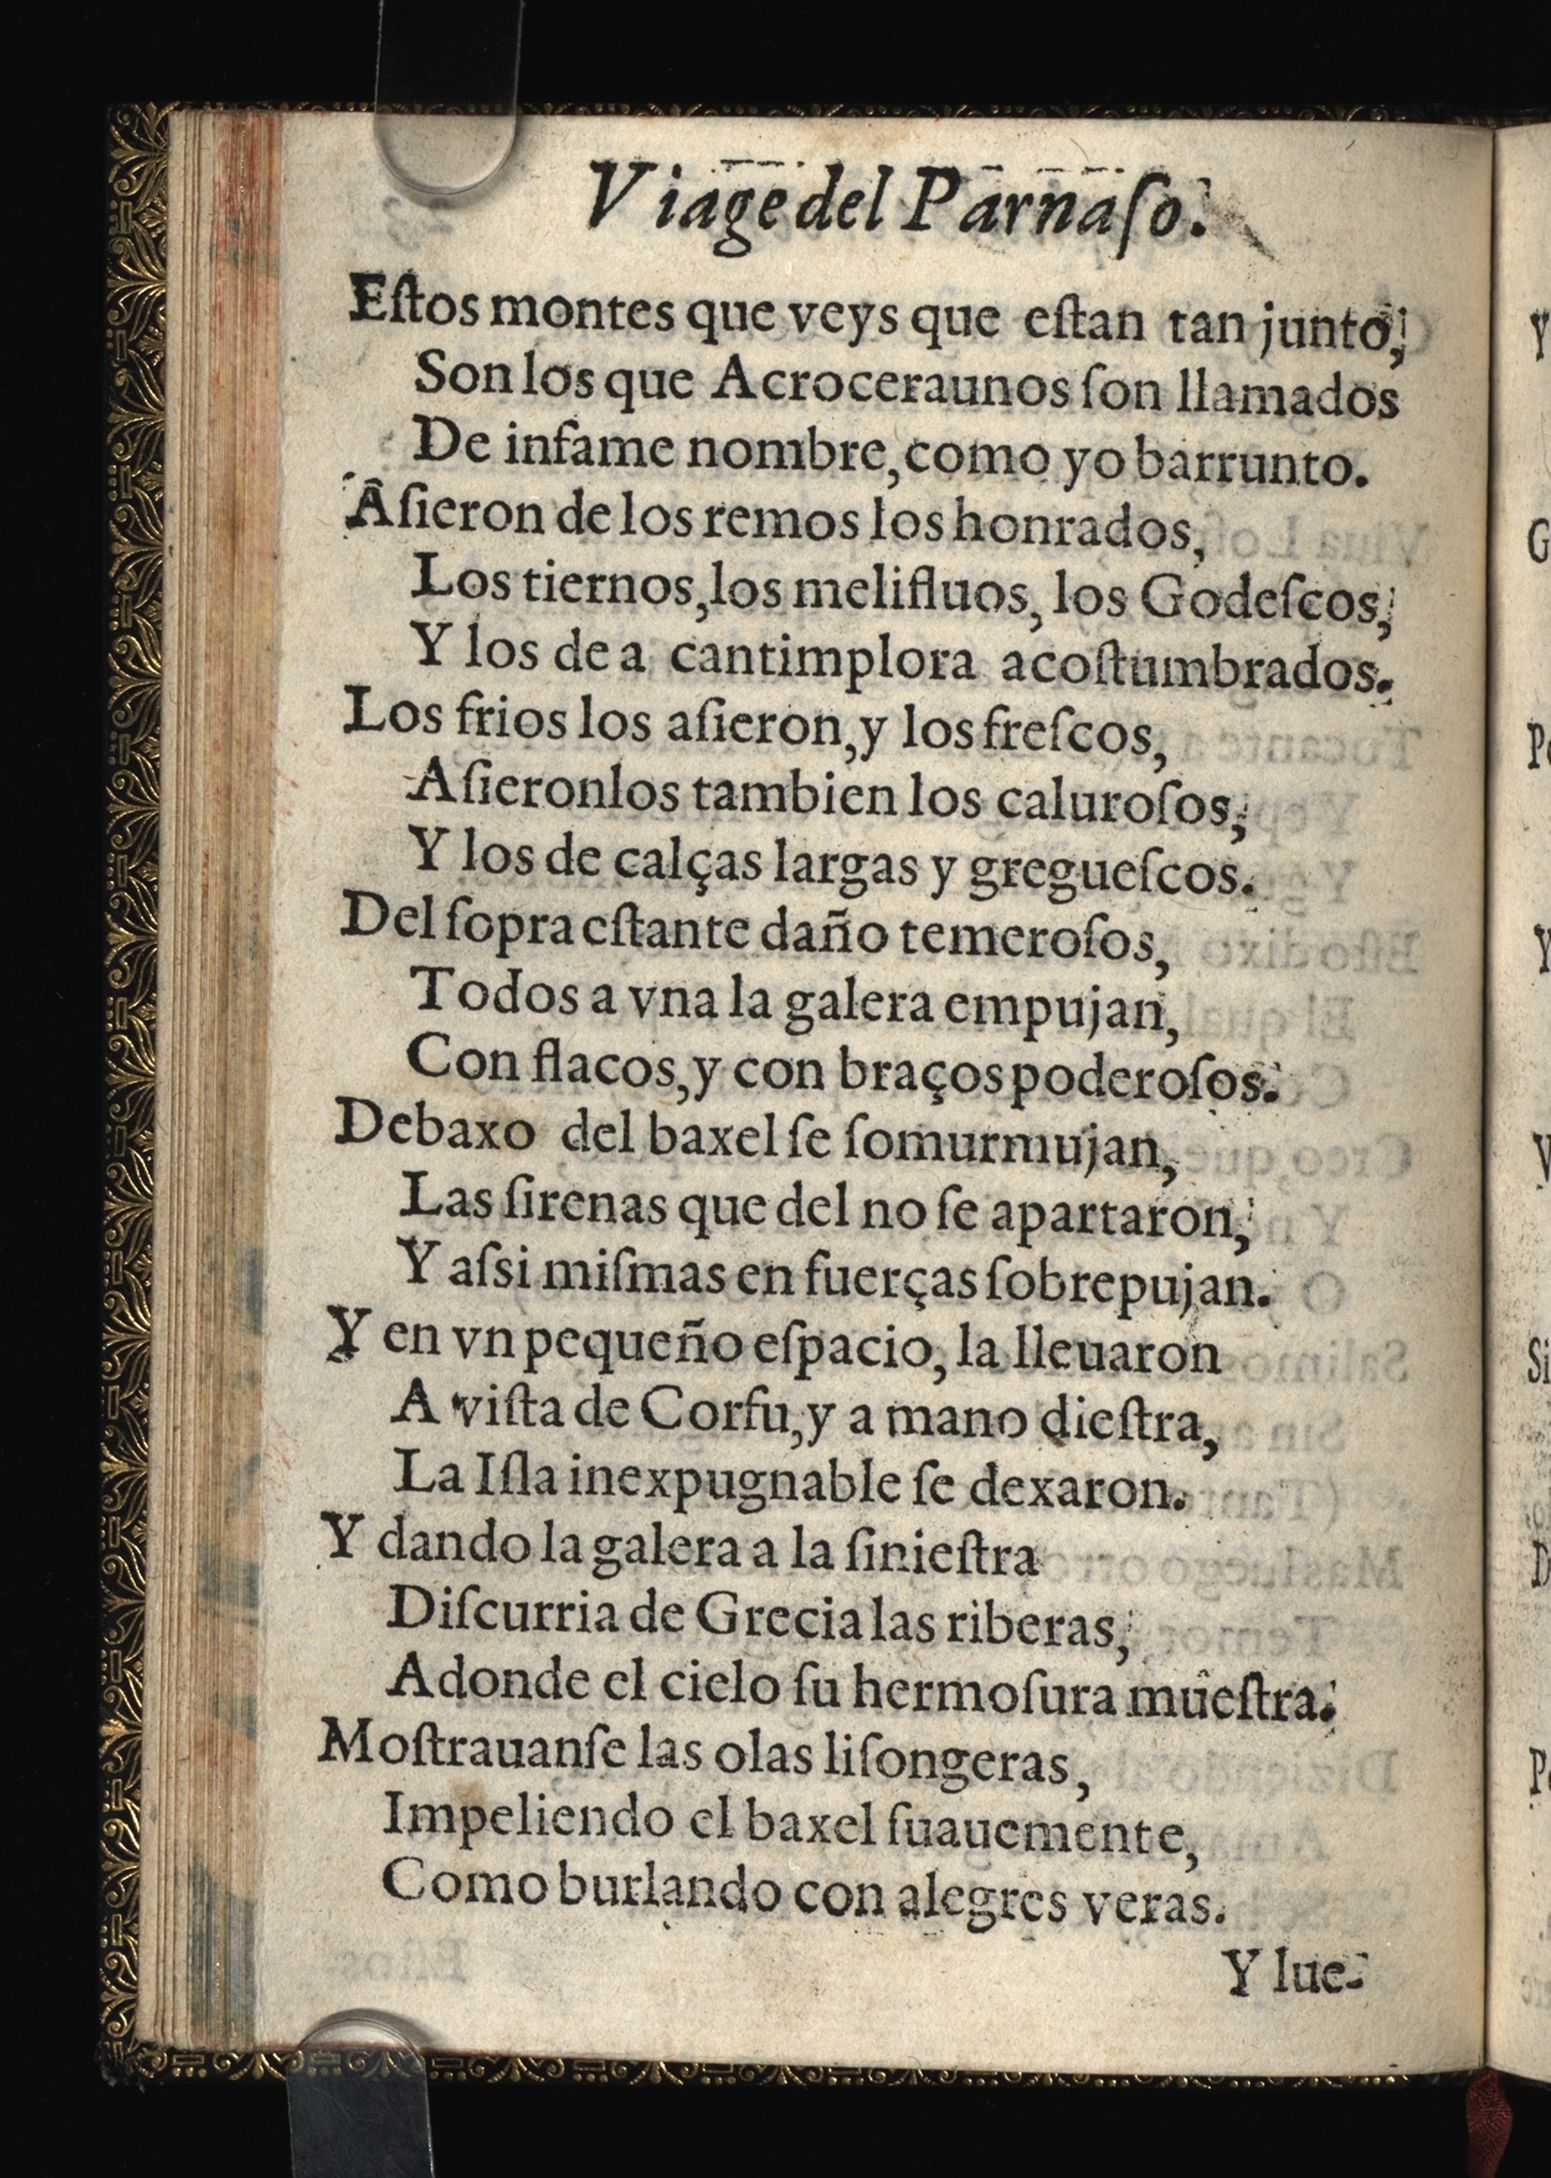 Viage del Parnaſo.
Eſtos montes que veys que eſtan tan junto,
Son los que Acroceraunos ſon llamados
De infame nombre, como yo barrunto.
Aſieron de los remos los honrados,
Los tiernos, los melifluos, los Godeſcos,
Y los de a cantimplora acoſtumbrados.
Los frios los aſieron, y los freſcos,
Aſieronlos tambien los caluroſos,
Y los de calças largas y gregueſcos.
Del ſopra eſtante daño temeroſos,
Todos a vna la galera empujan,
Con flacos, y con braços poderoſos.
Debaxo del baxel ſe ſomurmujan,
Las ſirenas que del no ſe apartaron,
Y aſsi miſmas en fuerças ſobrepujan.
Y en vn pequeño eſpacio, la lleuaron
A viſta de Corfu, y a mano dieſtra,
La Iſla inexpugnable ſe dexaron.
Y dando la galera a la ſinieſtra
Diſcurria de Grecia las riberas,
Adonde el cielo ſu hermoſura mueſtra.
Moſtrauanſe las olas liſongeras,
Impeliendo el baxel ſuauemente,
Como burlando con alegres veras.
Y lue-